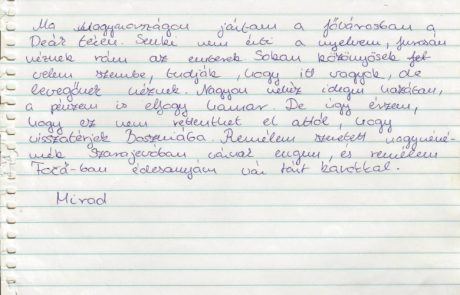 Ma Magyarországon jártam a fővárosban a
Deák téren. Senki nem érti a nyelvem, furcsán
néznek rám az emberek. Sokan közönyösek
velem szembe, tudják, hogy itt vagyok, de
levegőnek néznek. Nagyon nehéz idegen hazában,
a pénzem is elfogy hamar. De úgy érzem,
hogy ez nem rettenthet el attól, hogy
visszatérjek Boszniába. Remélem szeretett nagynéné-
mék Szarajevóban várnak engem, és remélem
Foča-ban édesanyám vár tárt karokkal.
Mirad